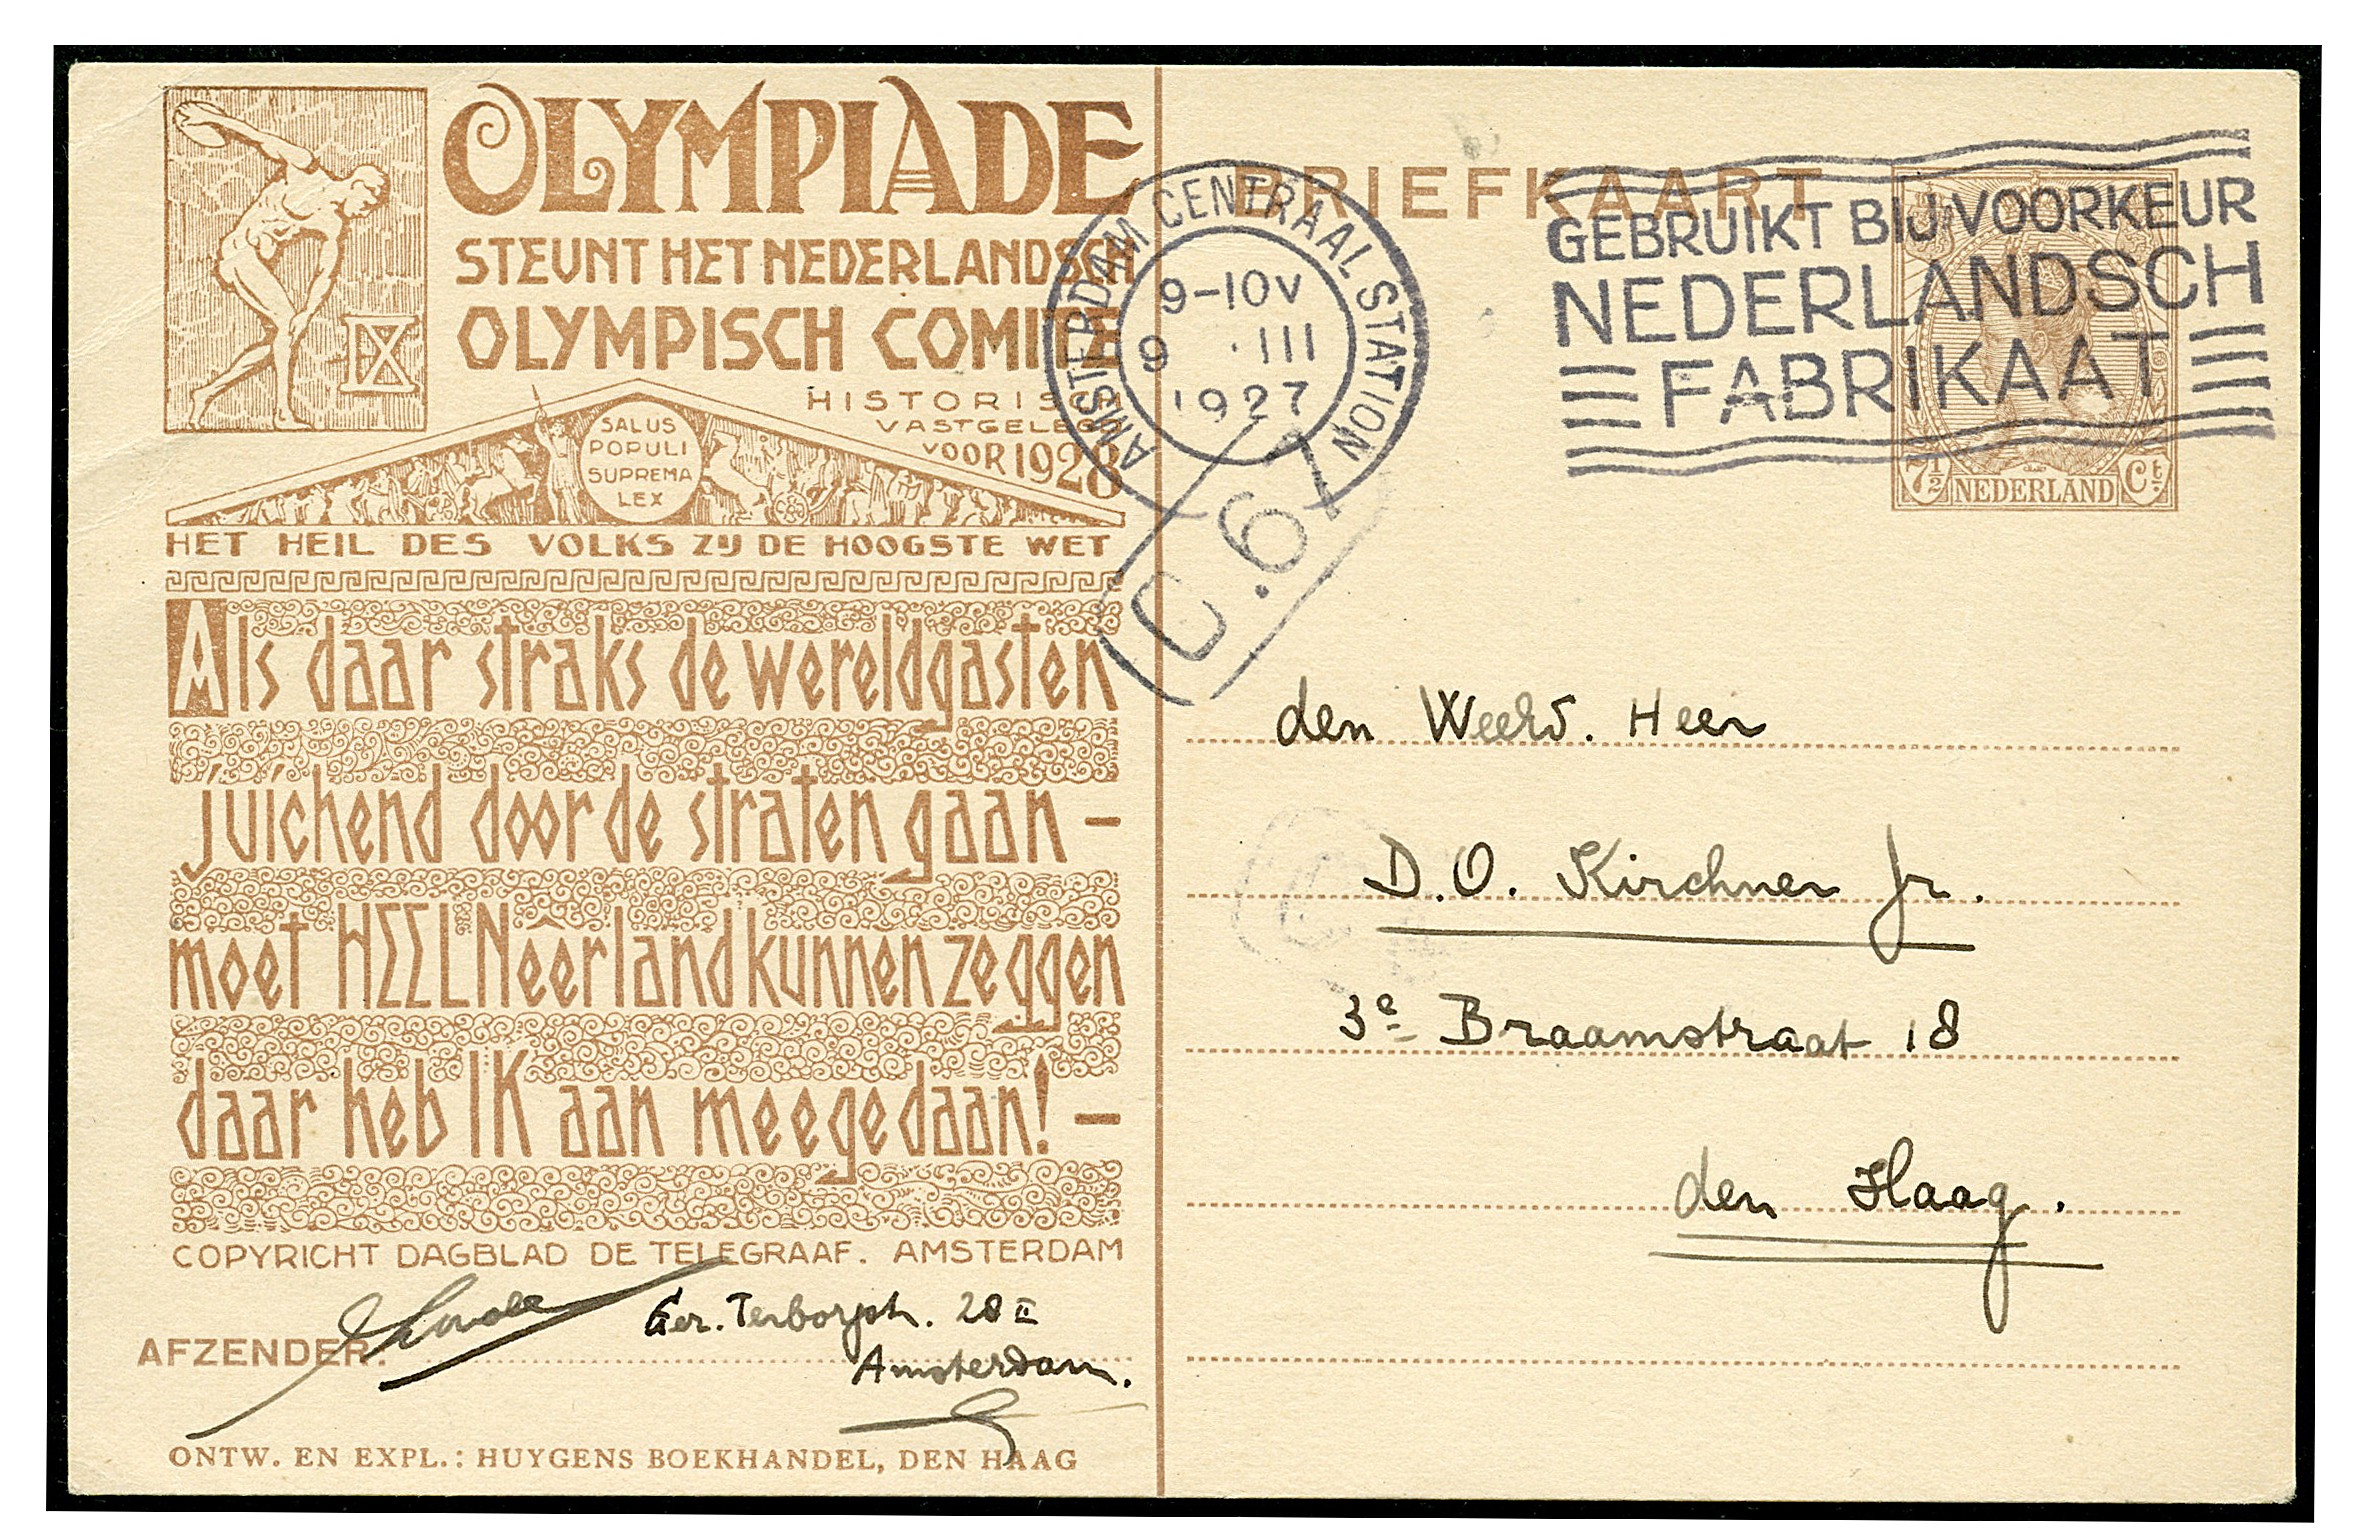 OLYMPIADE
STEUNT HET NEDERLANDSCH
OLYMPISCH COMITÉ
IX
HISTORISCH
VASTGELEGD
VOOR 1928
SALUS
POPULI
SUPREMA
LEX
HET HEIL DES VOLKS ZIJ DE HOOGSTE WET
Als daar straks de wereldgasten
juichend door de straten gaan -
moet HEEL Neêrland kunnen zeggen
daar heb IK aan meegedaan! -
COPYRICHT DAGBLAD DE TELEGRAAF. AMSTERDAM
AFZENDER:
Ger. Terborgstr. 28 II
Amsterdam.
ONTW. EN EXPL.: HUYGENS BOEKHANDEL, DEN HAAG
BRIEFKAART
AMSTERDAM CENTRAAL STATION
9-10V
9 .III
1927
GEBRUIKT BIJ VOORKEUR
NEDERLANDSCH
FABRIKAAT
7½ NEDERLAND Ct.
den Weled. Heer
D.O. Kirchner Jr.
3e Braamstraat 18
den Haag.